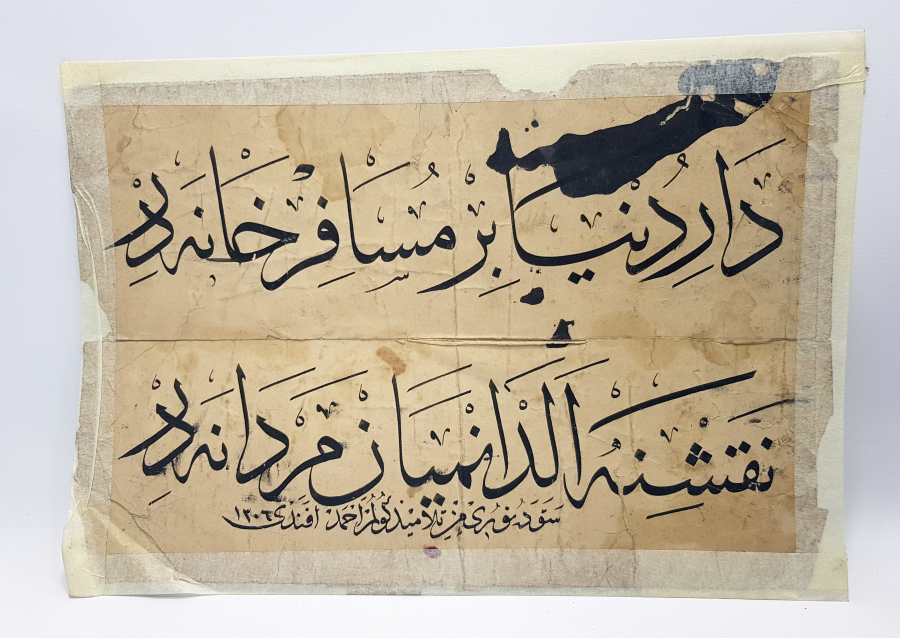 دار دنیا بر مسافرخانه در
نقشنه الدانمیان مردانه در
سوده نوری من تلامیذ كولمز احمد افندی